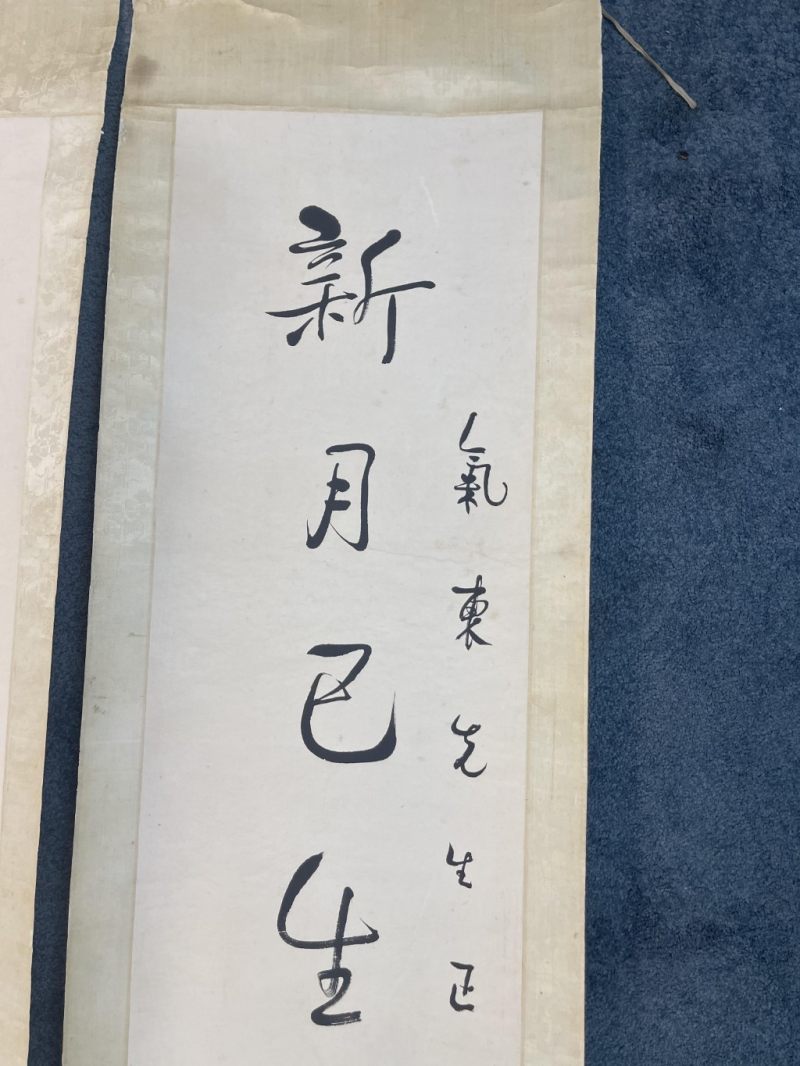 氣東先生正
新月已生